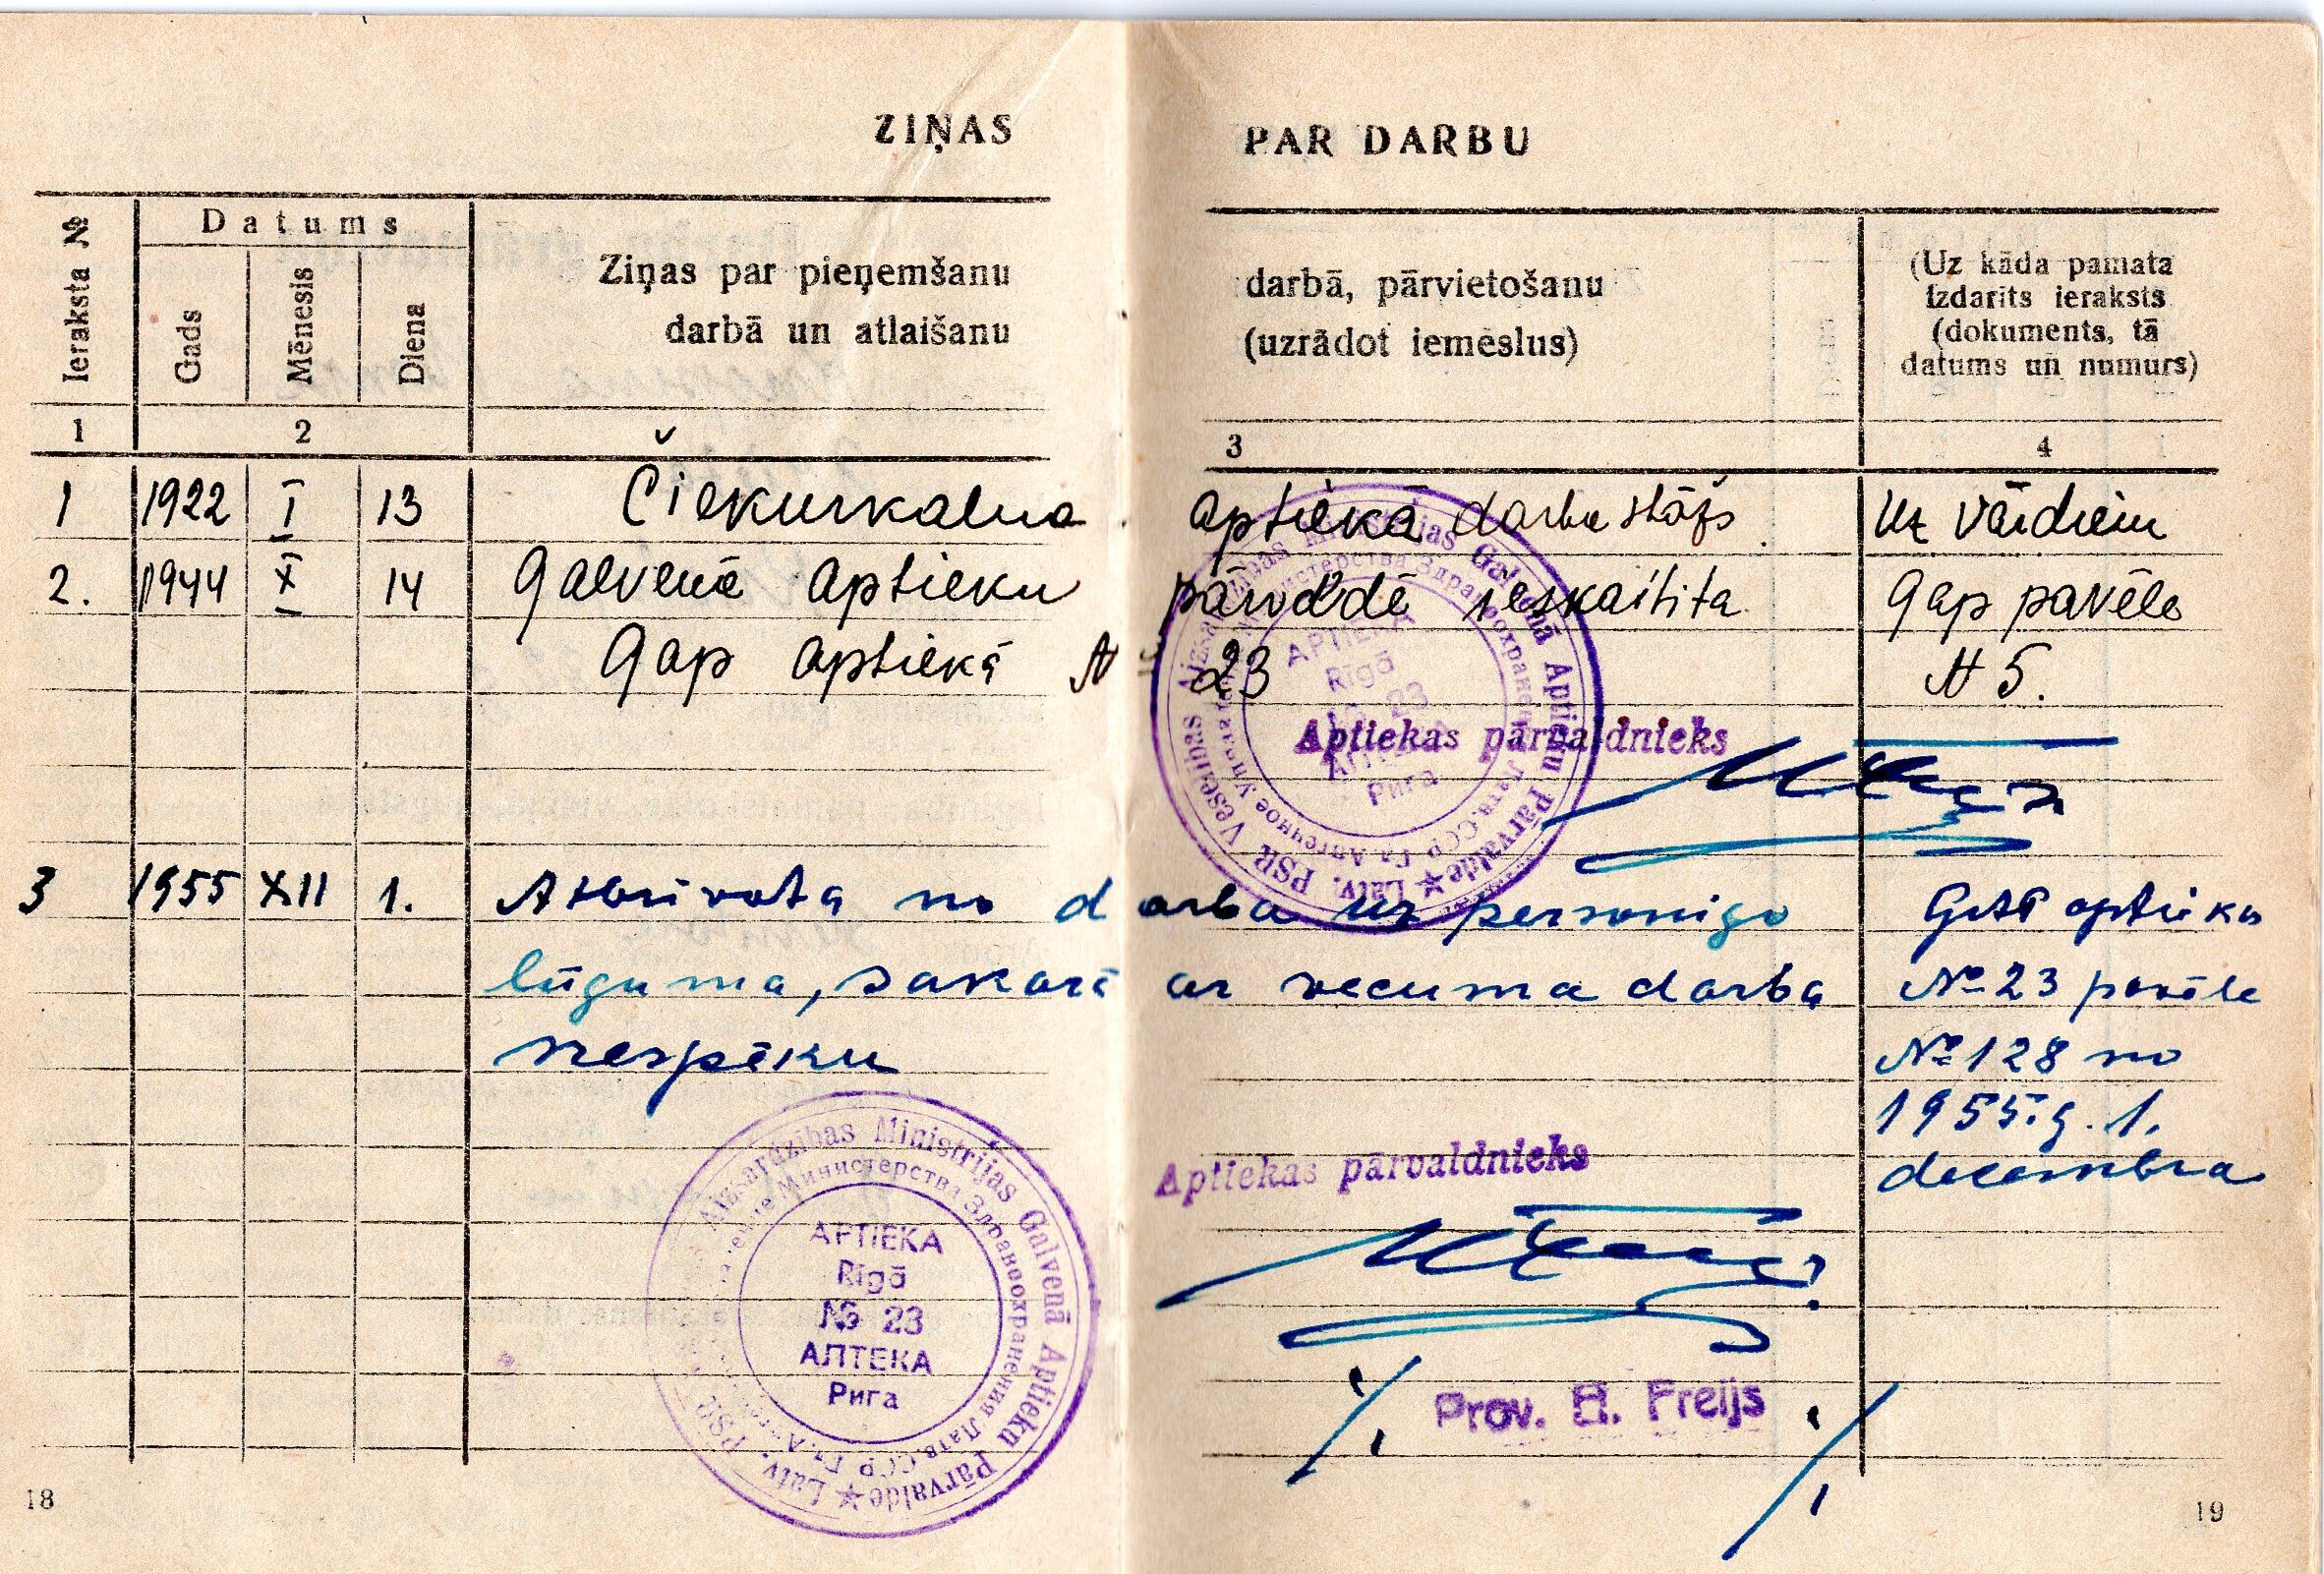 ZIŅAS PAR DARBU
Ieraksta №
Datums
Gads
Mēnesis
Diena
Ziņas par pieņemšanu darbā, pārvietošanu
darbā un atlaišanu (uzrādot iemeslus)
(Uz kāda pamata
izdarīts ieraksts
(dokuments, tā
datums un numurs)
1 2 3 4
1 1922 I 13 Čiekurkalna aptiekā darba stāžs Uz vārdiem
2. 1944 X 14 Galvenā aptieku pārvaldē ieskaitita Gap pavēle
Gap aptiekā N 23 N 5.
Aptiekas pārvaldnieks
3 1955 XII 1. Atbrivota no darba uz personigo aptiekas
lūguma, sakarā ar vecuma darba № 23 pavēle
nespēku № 128 no
1955.g. 1.
decembra
Aptiekas pārvaldnieks
Prov. H. Freijs
Latv. PSR Veselības Aizsardzības Ministrijas Galvenā Aptieku Pārvalde
Гл. Аптечное Управление Министерства Здравоохранения Латв. ССР
APTIEKA
Rīgā
№ 23
АПТЕКА
Рига
Latv. PSR Aizsardzības Ministrijas Galvenā Aptieku Pārvalde
Министерства Здравоохранения Латв. ССР
APTIEKA
Rīgā
№ 23
АПТЕКА
Рига
18 19